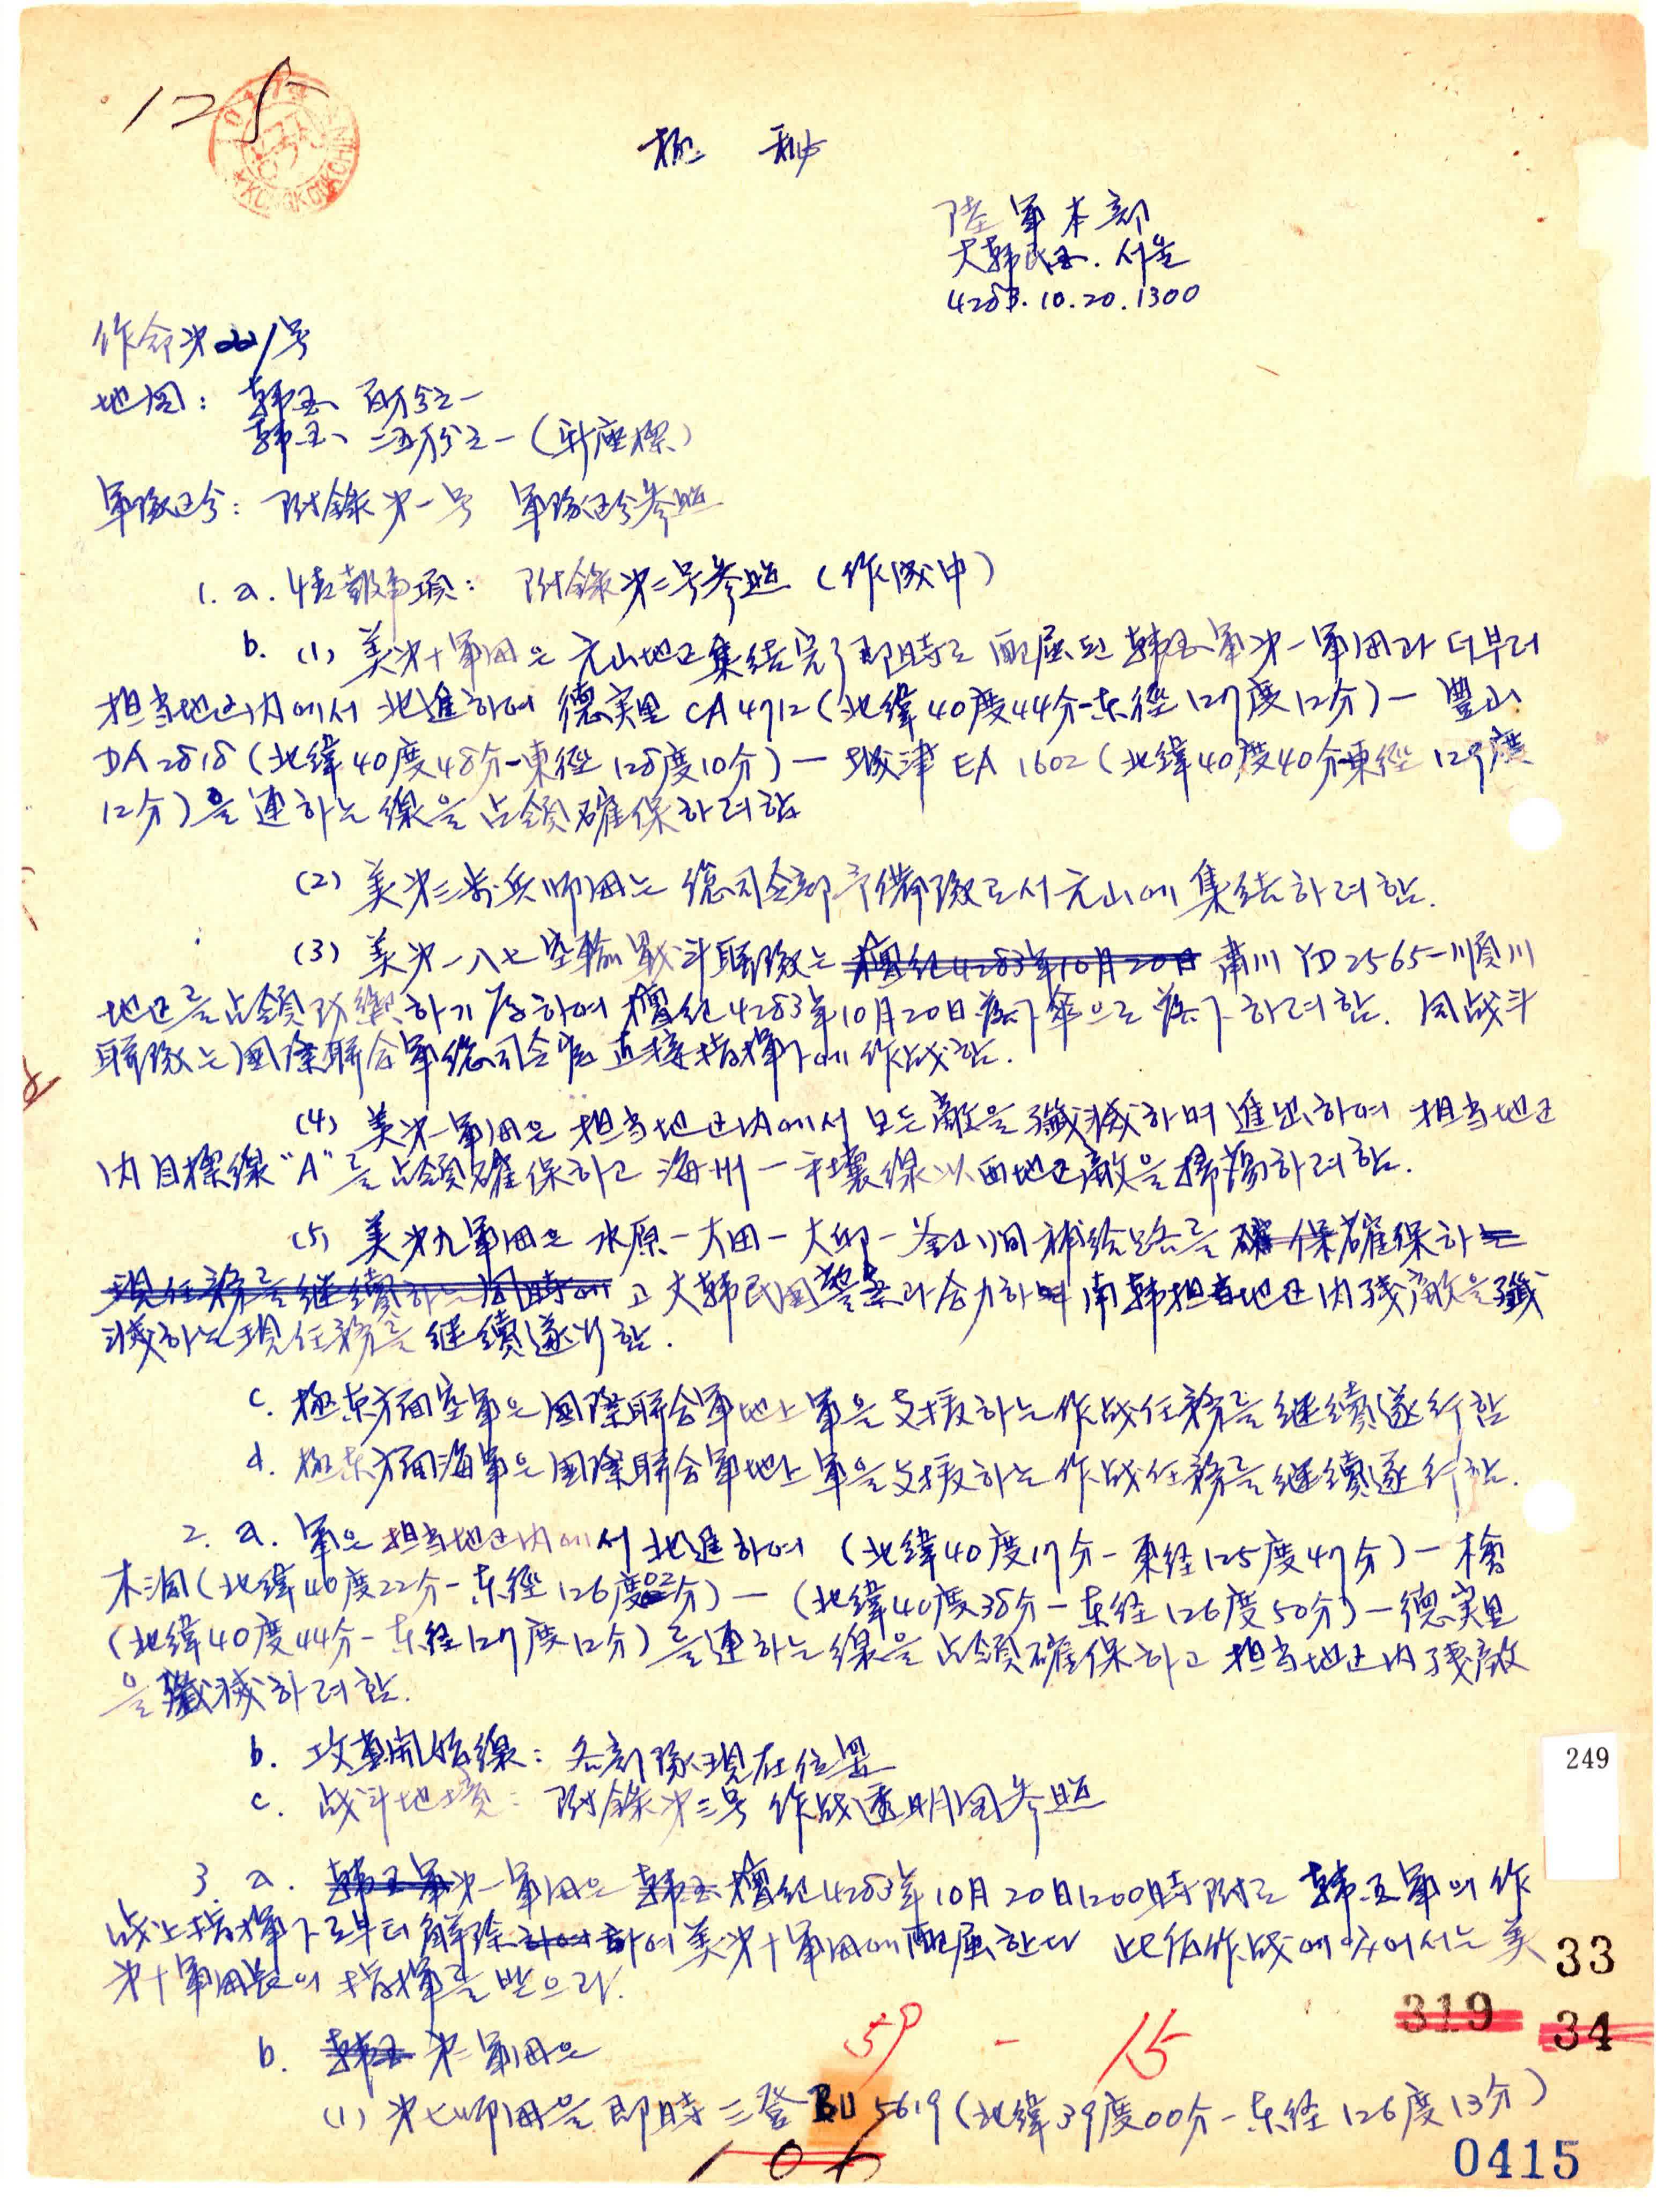 125
極 秘
陸軍本部
大韓民国. 서울
4283.10.20.1300
作命第 号
地図: 韓国 百万分之一
韓国 二五万分之一 (新座標)
軍隊区分: 附錄第一号 軍隊区分参照
1. a. 情報事項: 附錄第二号参照 (作成中)
b. (1) 美第十軍団은 元山地区集結完了即時로 配属된 韓国軍第一軍団과 더부러
担当地区内에서 北進하여 德実里 CA 4712 (北緯40度44分-东徑127度12分) - 豊山
DA 2818 (北緯40度48分-東徑128度10分) - 城津 EA 1602 (北緯40度40分東徑129度
12分)을 連하는 線을 占領確保하려함
(2) 美第三步兵師団는 總司令部予備隊로서 元山에 集結하려함.
(3) 美第一八七空輸戰斗聯隊는 檀紀4283年10月20日 肅川 YD 2565-順川
地区를占領防禦하기 爲하여 檀紀4283年10月20日落下傘으로 落下하려함. 同战斗
聯隊는 国際聯合軍總司令官 直接指揮下에 作战함.
(4) 美第一軍団은 担当地区内에서 모든敵을殲滅하며 進出하여 担当地区
内目標線"A"를占領確保하고 海州-平壤線以西地区敵을掃蕩하려함.
(5) 美第九軍団은 水原-大田-大邱-釜山间補給路를 確保確保하는
現任務를継續하는同時에 고 大韓民国警察과合力하여 南韓担当地区内残敵을殲
滅하는現任務를 継續遂行함.
c. 極东方面空軍은 国際聯合軍地上軍을支援하는作战任務를継續遂行함
d. 極东方面海軍은 国際聯合軍地上軍을支援하는 作战任務를継續遂行함.
2. a. 軍은担当地区内에서北進하여 (北緯40度17分-東経125度47分)-檜
木洞(北緯40度22分-东徑126度02分)-(北緯40度38分-东経126度50分)-德実里
(北緯40度44分-东経127度12分)를連하는線을占領確保하고 担当地区内残敵
을殲滅하려함.
b. 攻擊開始線: 各部隊現在位置
c. 战斗地境: 附錄第三号 作战透明図参照
3. a. 韓国軍第一軍団은 韓国檀紀4283年10月20日1200時附로 韓国軍의作
战上指揮下로부터 解除하여 하여美第十軍団에配属한다 此后作战에 있어서는 美
第十軍団長의 指揮를받으라.
b. 韓国 第二軍団은
(1) 第七師団을 即時 三登 BU 5619 (北緯39度00分-东経126度13分)
249
33
319 34
59 - 15
106
0415